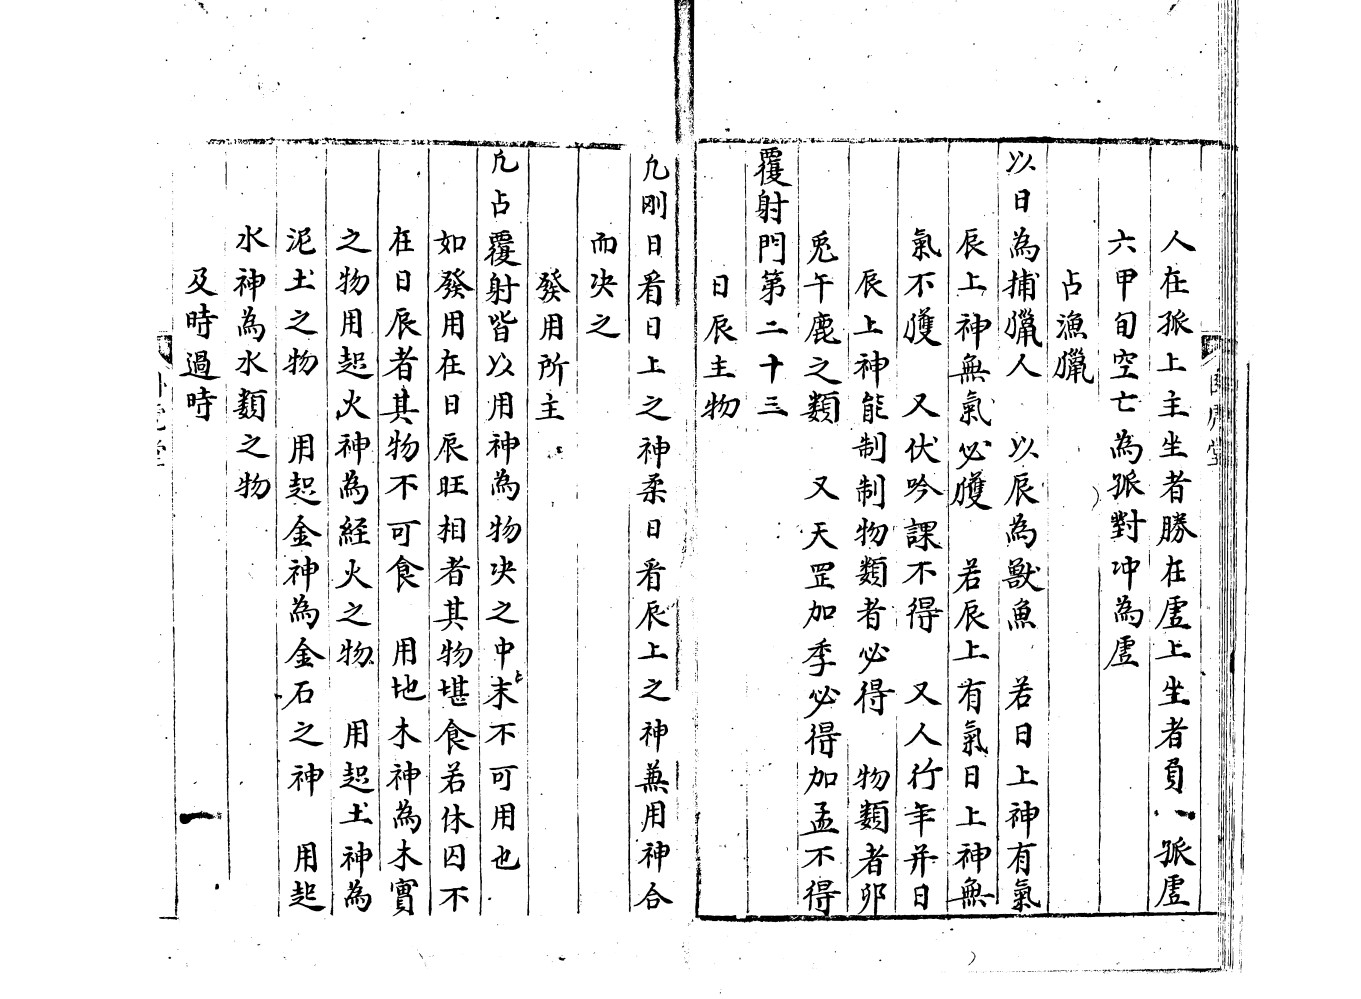 人在孤上主坐者勝在虛上坐者負八孤虛
六甲旬空亡為孤對冲為虛
占漁獵
以日為捕獵人　以辰為獸魚　若日上神有氣
辰上神無氣必獲　若辰上有氣日上神無
氣不獲　又伏吟課不得　又人行年并日
辰上神能制制物類者必得　物類者卯
兎午鹿之類　又天罡加季必得加孟不得
覆射門第二十三
日辰主物
凢剛日看日上之神柔日看辰上之神兼用神合
而决之
發用所主
凢占覆射皆以用神為物决之中末不可用也
如發用在日辰旺相者其物堪食若休囚不
在日辰者其物不可食　用地木神為木實
之物用起火神為経火之物　用起土神為
泥土之物　用起金神為金石之神　用起
水神為水類之物
及時過時